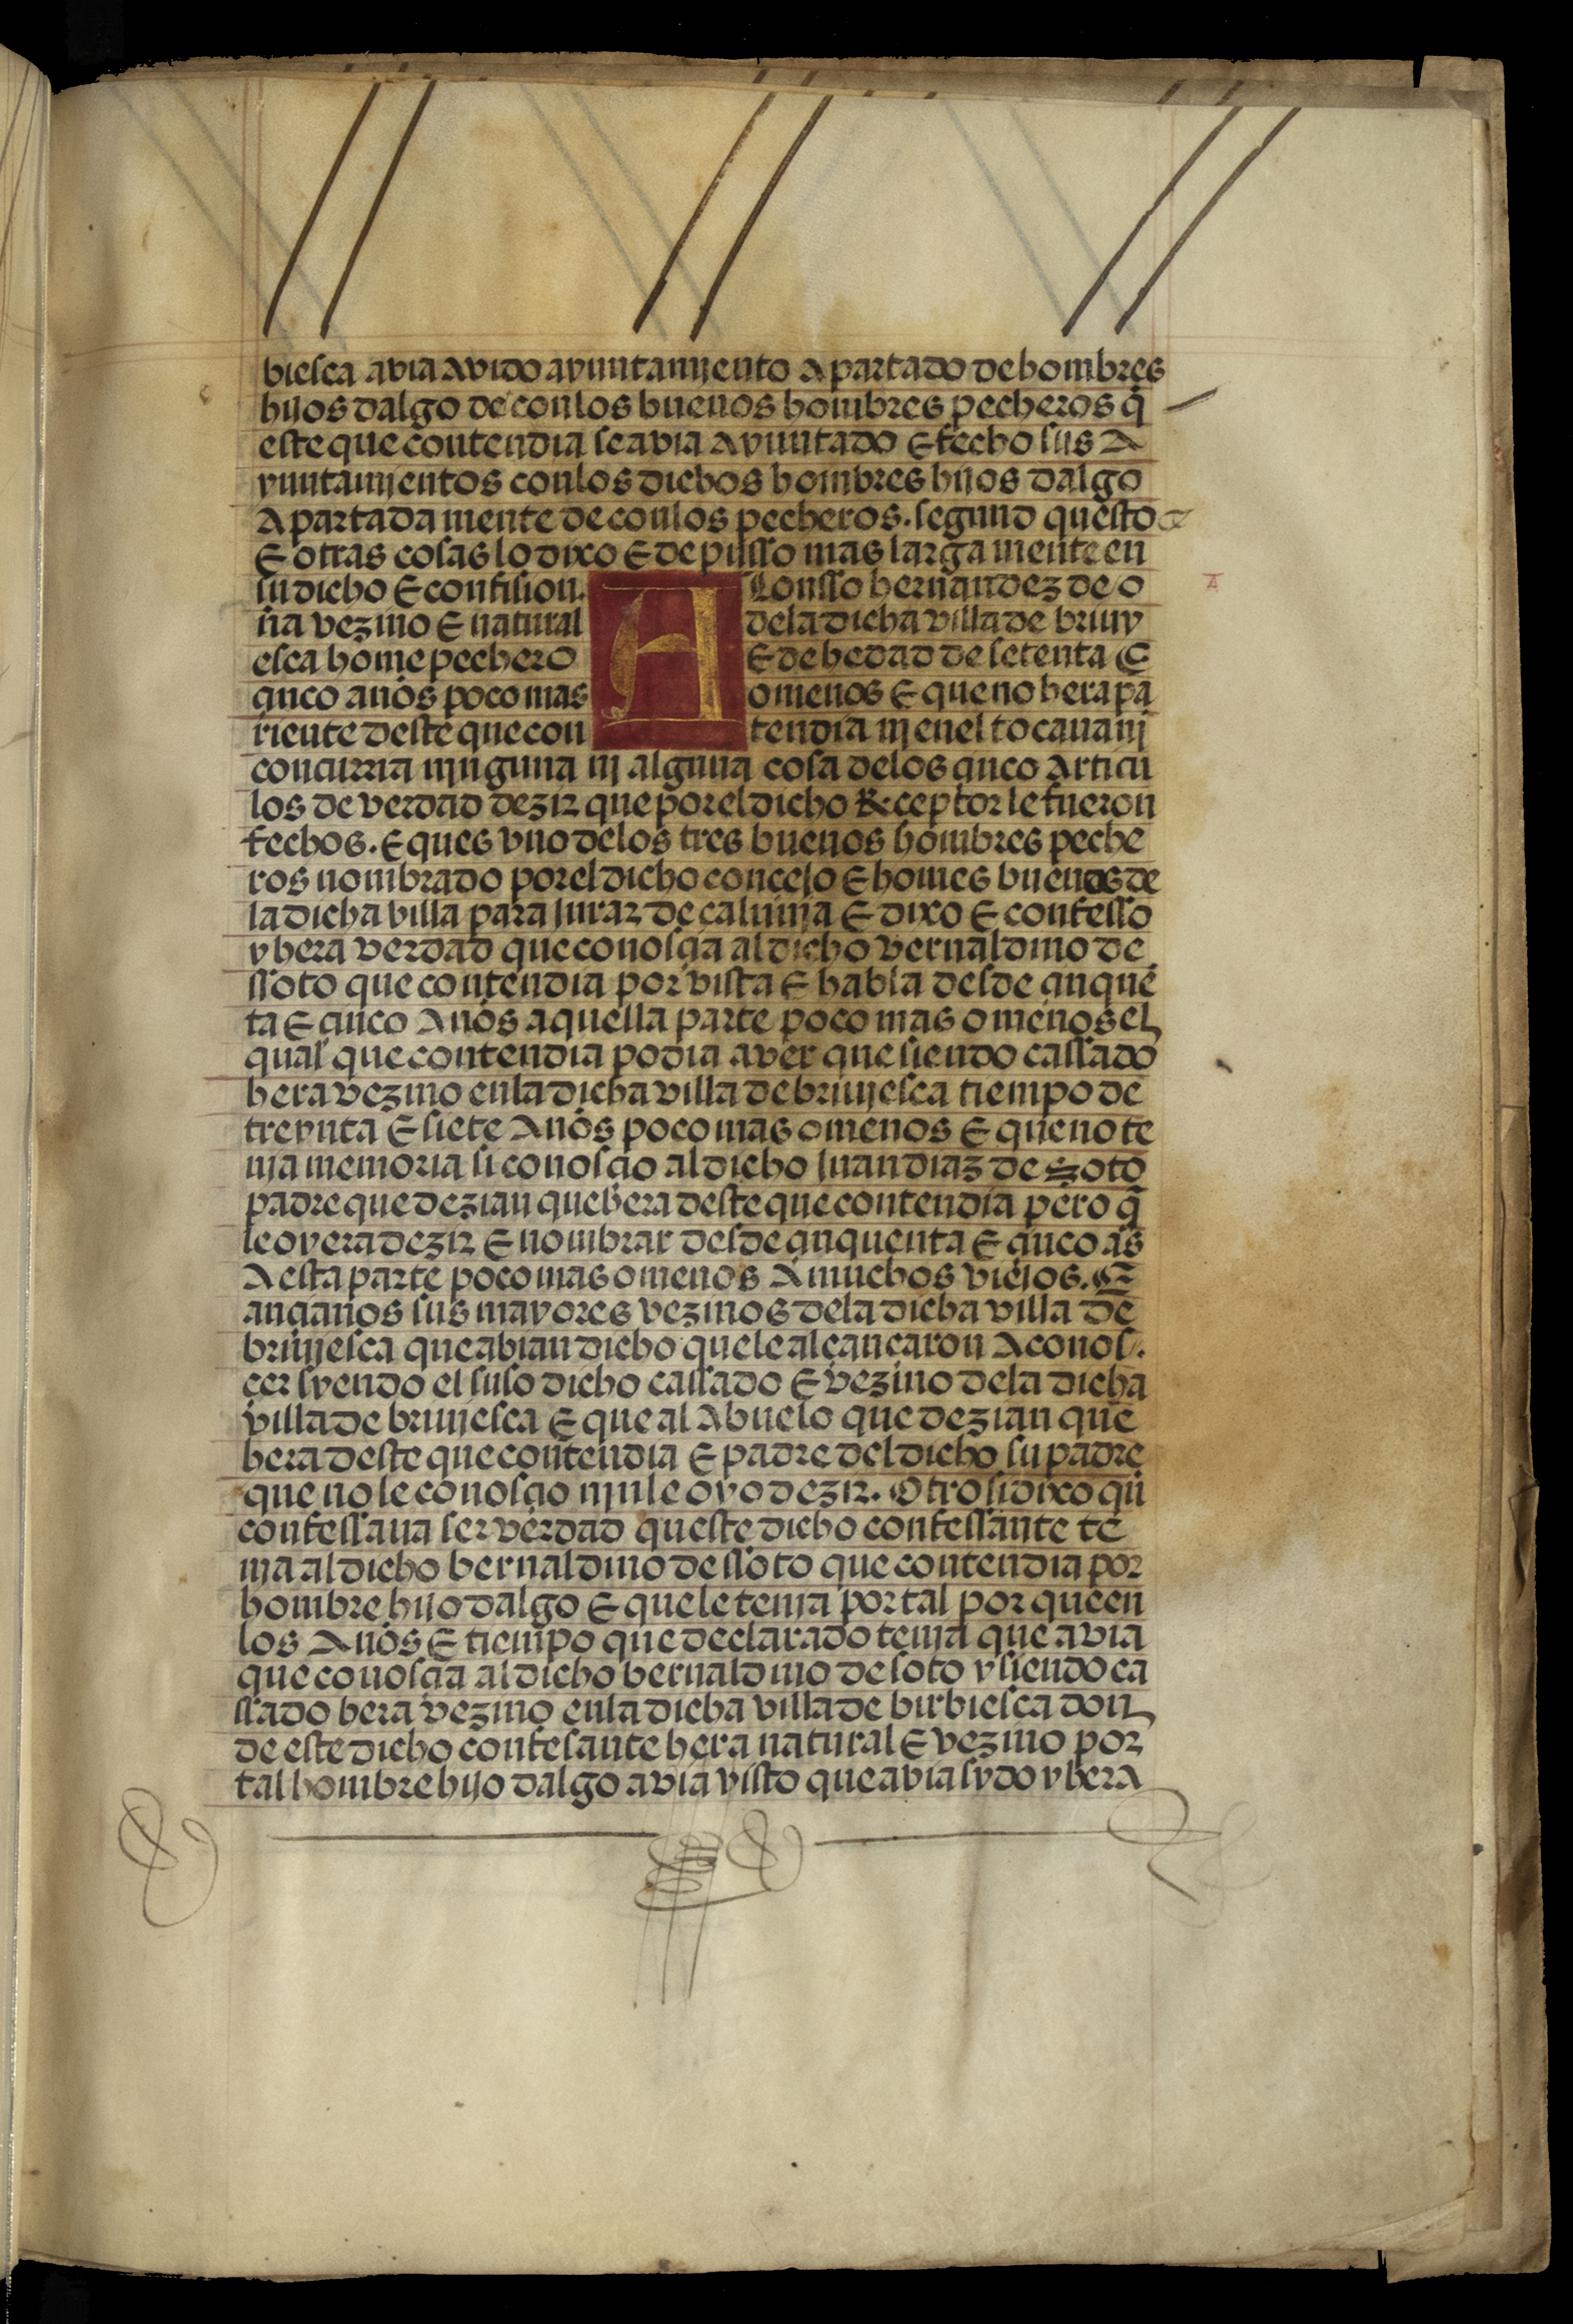 biesca avia avido ayuntamjento Apartado de hombres
hijos dalgo de con los buenos hombres pecheros q̃
este que contendia se avia Ayuntado E fecho sus A
yuntamjentos con los dichos hombres hijos dalgo
Apartada mente de con los pecheros. segund questo
E otras cosas lo dixo E depusso mas larga mente en
su dicho E confision. A Lonsso hernandez de o
ña vezino E natural de la dicha villa de briuy
esca home pechero E de hedad de setenta E
çinco años poco mas o menos E que no hera pa
riente deste que con tendia nj en el tocaua nj
concurria njnguna nj alguna cosa de los çinco Articu
los de verdad dezir que por el dicho Reçeptor le fueron
fechos. E ques vno de los tres buenos hombres peche
ros nombrado por el dicho concejo E homes buenos de
la dicha villa para Jurar de calunja E dixo E confesso
y hera verdad que conosçia al dicho vernaldino de
ssoto que contendia por vista E habla desde çinquē
ta E çinco Años aquella parte poco mas o menos el
qual que contendia podia aver que siendo cassado
hera vezino en la dicha villa de briujesca tiempo de
treynta E siete Años poco mas o menos E que no te
nja memoria si conosçio al dicho Juan diaz de Soto
padre que dezian que hera deste que contendia pero q̃
le oyera dezir E nombrar desde çinquenta E çinco as̃
A esta parte poco mas o menos A muchos viejos. E
ançianos sus mayores vezinos de la dicha villa de
briujesca que abian dicho que le alcançaron A conos.
cer syendo el suso dicho cassado E vezino de la dicha
villa de briujesca E que al Abuelo que dezian que
hera deste que contendia E padre del dicho su padre
que no le conosçio njn le oyo dezir. Otrosi dixo q̃
confessaua ser verdad queste dicho confessante te
nja al dicho bernaldino de ssoto que contendia por
hombre hijo dalgo E que le tenja por tal por que en
los Años E tiempo que declarado tenja que avia
que conosçia al dicho bernaldino de soto y siendo ca
ssado hera vezino en la dicha villa de birbiesca don
de este dicho confesante hera natural E vezino por
tal hombre hijo dalgo avia visto que avia sydo y hera